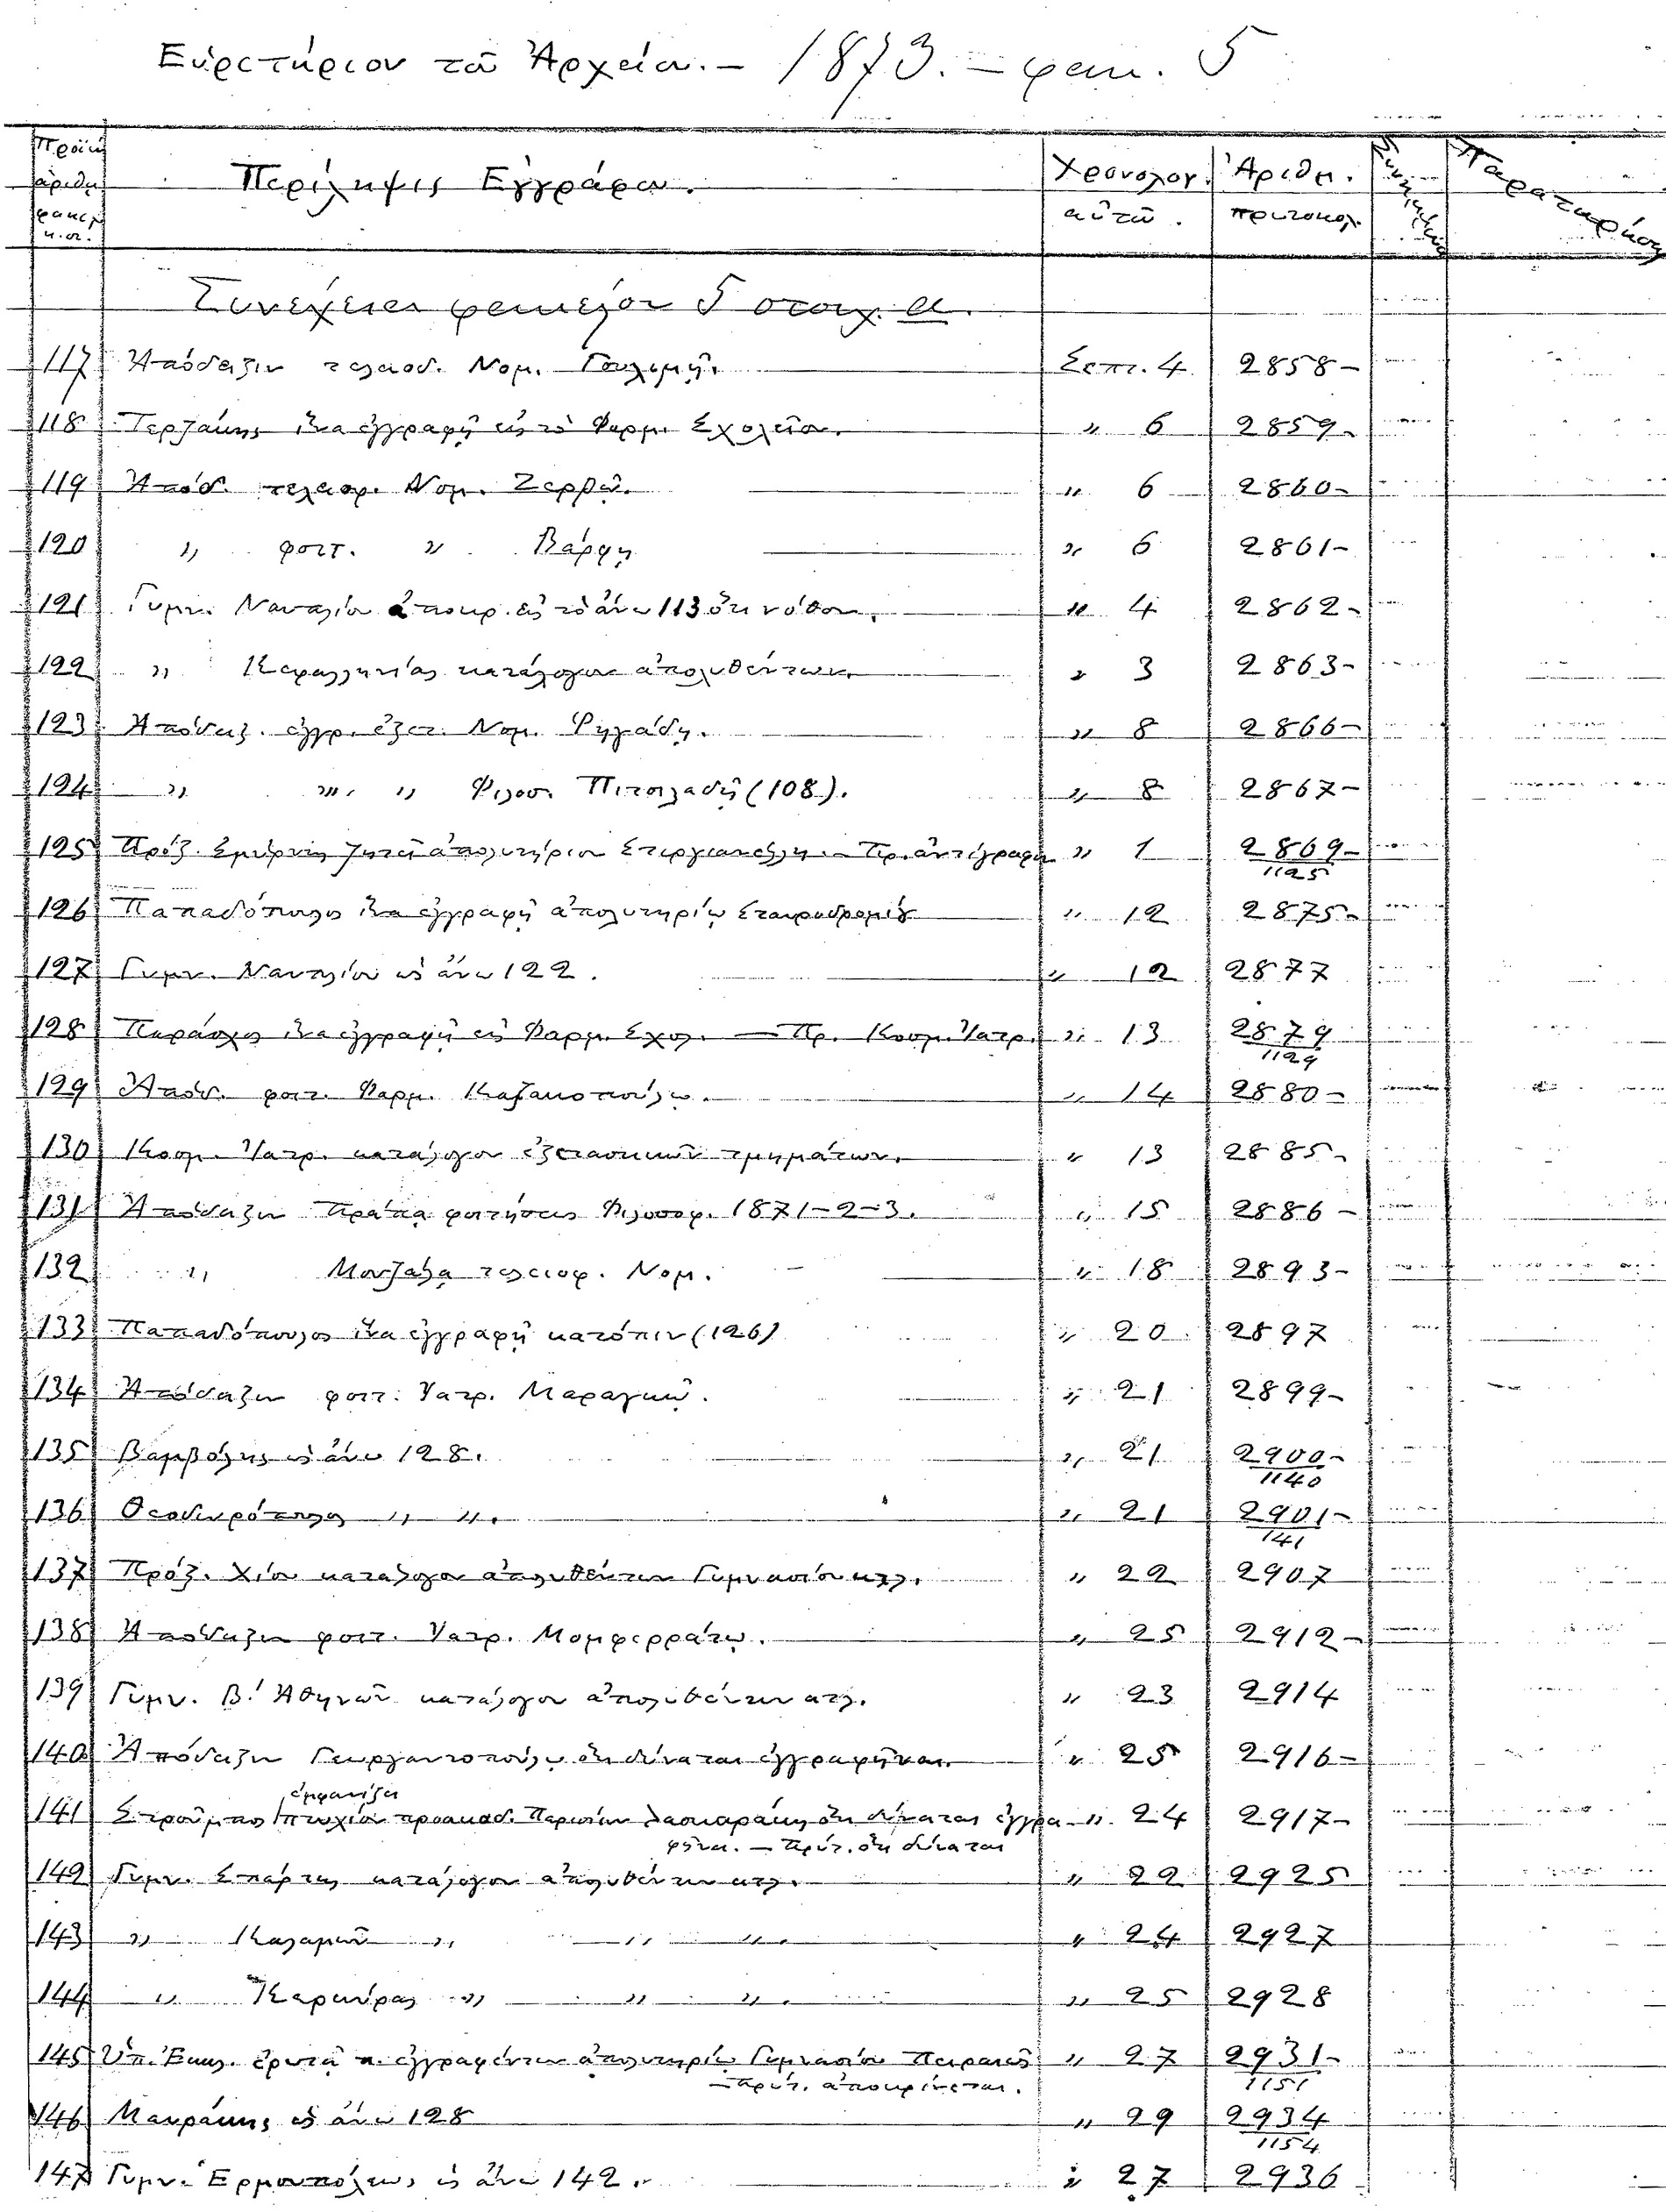 Εὑρετήριον τοῦ Ἀρχείου. – 1873. – φακ. 5
ἀριθμ. Περίληψις Ἐγγράφου. Χρονολογ. Ἀριθμ. Παρατηρήσεις
φακέλ. αὐτοῦ. πρωτοκολ.
κ. στ.
Συνέχεια φακέλου 5 στοιχ. α.
117 Ἀπόδειξιν τελειοφ. Νομ. Σεπτ. 4 2858 –
118 Τερζάκης ἵνα ἐγγραφῇ εἰς τὸ Φαρμ. Σχολεῖον. " 6 2859 –
119 Ἀπόδ. τελειοφ. Νομ. Ζερβῷ. " 6 2860 –
120 " φοιτ. " Βάρφη " 6 2861 –
121 Γυμν. Ναυπλίου ἀποκρ. εἰς τὸ ἄνω 113 ὅτι νόθον. " 4 2862 –
122 " Κεφαλληνίας κατάλογον ἀπολυθέντων. " 3 2863 –
123 Ἀπόδειξ. ἐγγρ. ἐξετ. Νομ. Ῥηγάδη. " 8 2866 –
124 " " " Φιλοσ. Πιτσιλαδῆ (108). " 8 2867 –
125 Πρόξ. Σμύρνης ζητεῖ ἀπολυτήριον Στεργιανέλλη. – Πρ. ἀντίγραφον " 1 2869 –
1125
126 Παπαδόπουλος ἵνα ἐγγραφῇ ἀπολυτηρίῳ Σταυροδρομίου " 12 2875 –
127 Γυμν. Ναυπλίου ὡς ἄνω 122. " 12 2877
128 Παράσχος ἵνα ἐγγραφῇ εἰς Φαρμ. Σχολ. – Πρ. Κοσμ. Ἰατρ. " 13 2879
1129
129 Ἀπόδ. φοιτ. Φαρμ. Καζακοπούλῳ. " 14 2880 –
130 Κοσμ. Ἰατρ. κατάλογον ἐξεταστικῶν τμημάτων. " 13 2885 –
131 Ἀπόδειξιν Πράπα φοιτήσεως Φιλοσοφ. 1871–2–3. " 15 2886 –
132 " Μουζάλα τελειοφ. Νομ. " 18 2893 –
133 Παπαδόπουλος ἵνα ἐγγραφῇ κατόπιν (126) " 20 2897
134 Ἀπόδειξιν φοιτ. Ἰατρ. Μαραγκῷ. " 21 2899 –
135 Βαμβόλης ὡς ἄνω 128. " 21 2900 –
1140
136 Θεοδωρόπουλος " ". " 21 2901 –
141
137 Πρόξ. Χίου κατάλογον ἀπολυθέντων Γυμνασίου κτλ. " 22 2907
138 Ἀπόδειξιν φοιτ. Ἰατρ. Μομφερράτῳ. " 25 2912 –
139 Γυμν. Β.' Ἀθηνῶν κατάλογον ἀπολυθέντων κτλ. " 23 2914
140 Ἀπόδειξιν Γεωργαντοπούλῳ ὅτι δύναται ἐγγραφῆναι. " 25 2916 –
ἐμφανίζει
141 Στροῦμπος πτυχίον προακαδ. Παρισίων Λασκαράκης ὅτι δύναται ἐγγρα- " 24 2917 –
φῆναι. – Πρύτ. ὅτι δύναται
142 Γυμν. Σπάρτης κατάλογον ἀπολυθέντων κτλ. " 22 2925
143 " Καλαμῶν " " ". " 24 2927
144 " Κερκύρας " " ". " 25 2928
145 Ὑπ. Ἐκκλ. ἐρωτᾷ π. ἐγγραφέντων ἀπολυτηρίῳ Γυμνασίου Πειραιῶς " 27 2931 –
– Πρύτ. ἀποκρίνεται. 1151
146 Μαυράκης ὡς ἄνω 128 " 29 2934
1154
147 Γυμν. Ἑρμουπόλεως ὡς ἄνω 142. " 27 2936